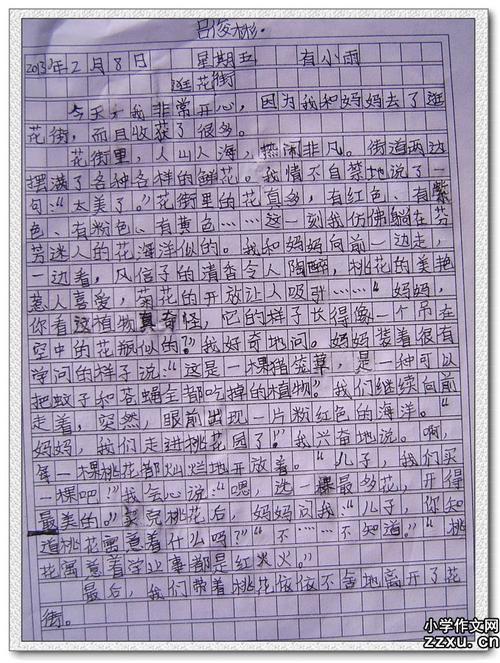 吕俊彬.
2013年2月8日 星期五 有小雨
逛花街
今天，我非常开心，因为我和妈妈去了逛
花街，而且收获了很多。
花街里，人山人海，热闹非凡。街道两边
摆满了各种各样的鲜花。我情不自禁地说了一
句：“太美了。”花街里的花真多，有红色、有紫
色、有粉色、有黄色……这一刻我仿佛躺在芬
芳迷人的花海洋似的。我和妈妈向前一边走，
一边看，风信子的清香令人陶醉，桃花的美艳
惹人喜爱，菊花的开放让人吸引……“妈妈，
你看这植物真奇怪，它的样子长得像一个吊在
空中的花瓶似的？”我好奇地问。妈妈装着很有
学问的样子说：“这是一棵猪笼草，是一种可以
把蚊子和苍蝇全都吃掉的植物。”我们继续向前
走着，突然，眼前出现一片粉红色的海洋。“
妈妈，我们走进桃花园了！”我兴奋地说。啊，
每一棵桃花都灿烂地开放着。“儿子，我们买
一棵吧！”我会心说：“嗯，选一棵最多花，开得
最美的。”买完桃花后，妈妈问我：“儿子，你知
道桃花寓意着什么吗？”“不……不知道。”“桃
花寓意着学业事都是红火火。”
最后，我们带着桃花依依不舍地离开了花
街。
小学作文网
zzxu.cn